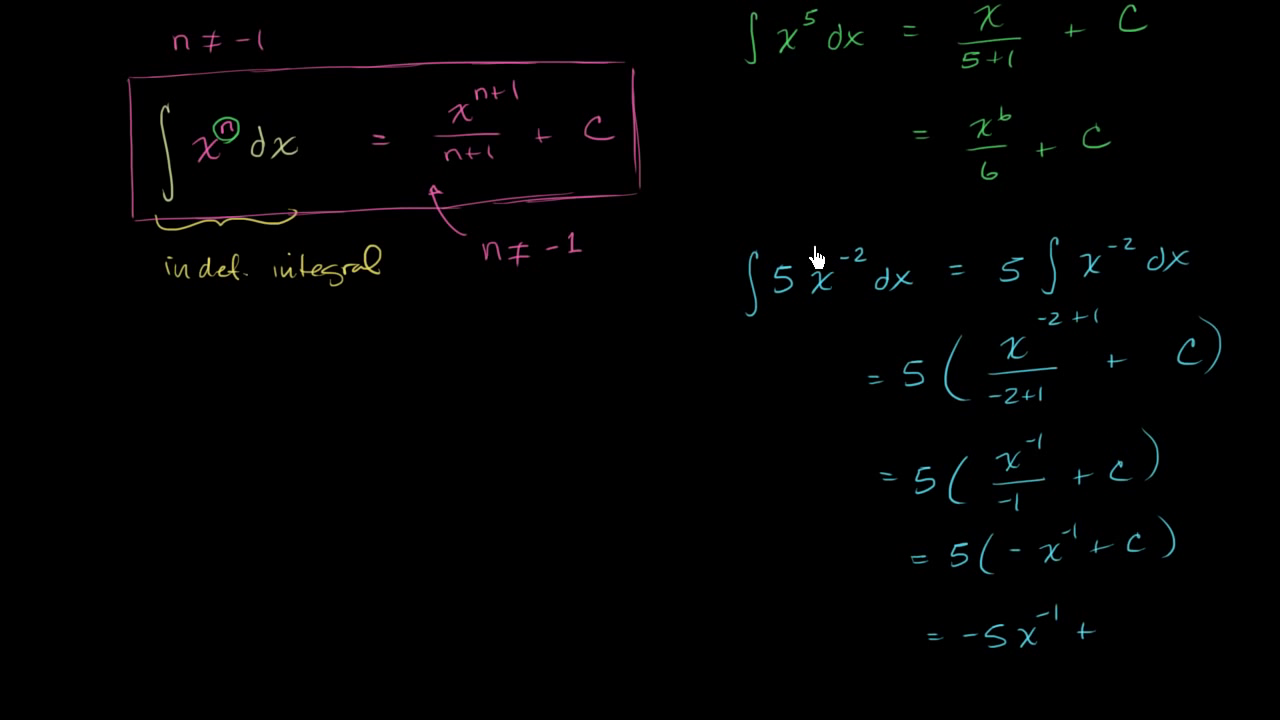 n ≠ -1
∫ xⁿ dx = xⁿ⁺¹/(n+1) + C
n ≠ -1
indef. integral
∫ x⁵ dx = x/(5+1) + C
= x⁶/6 + C
∫ 5 x⁻² dx = 5 ∫ x⁻² dx
= 5 ( x⁻²⁺¹/(-2+1) + C )
= 5 ( x⁻¹/-1 + C )
= 5 ( - x⁻¹ + C )
= -5x⁻¹ +